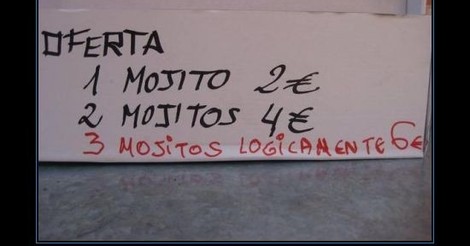 OFERTA
1 MOJITO 2€
2 MOJITOS 4€
3 MOJITOS LOGICAMENTE 6€